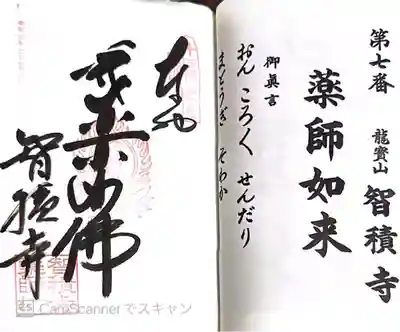 第七番 龍寶山 智積寺
薬師如来
御眞言
おん ころ〱 せんだり
まとうぎ そわか
智積寺
CamScanner でスキャン